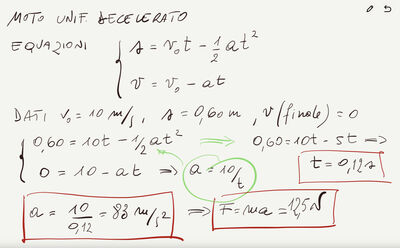 MOTO UNIF DECELERATO
EQUAZIONI { s = v₀t - 1/2 at²
v = v₀ - at
DATI v₀ = 10 m/s, s = 0,60 m, v(finale) = 0
{ 0,60 = 10t - 1/2 at² ⇒ 0,60 = 10t - 5t ⇒
0 = 10 - at ⇒ a = 10/t t = 0,12 s
a = 10/0,12 = 83 m/s² ⇒ F = ma = 12,5 N